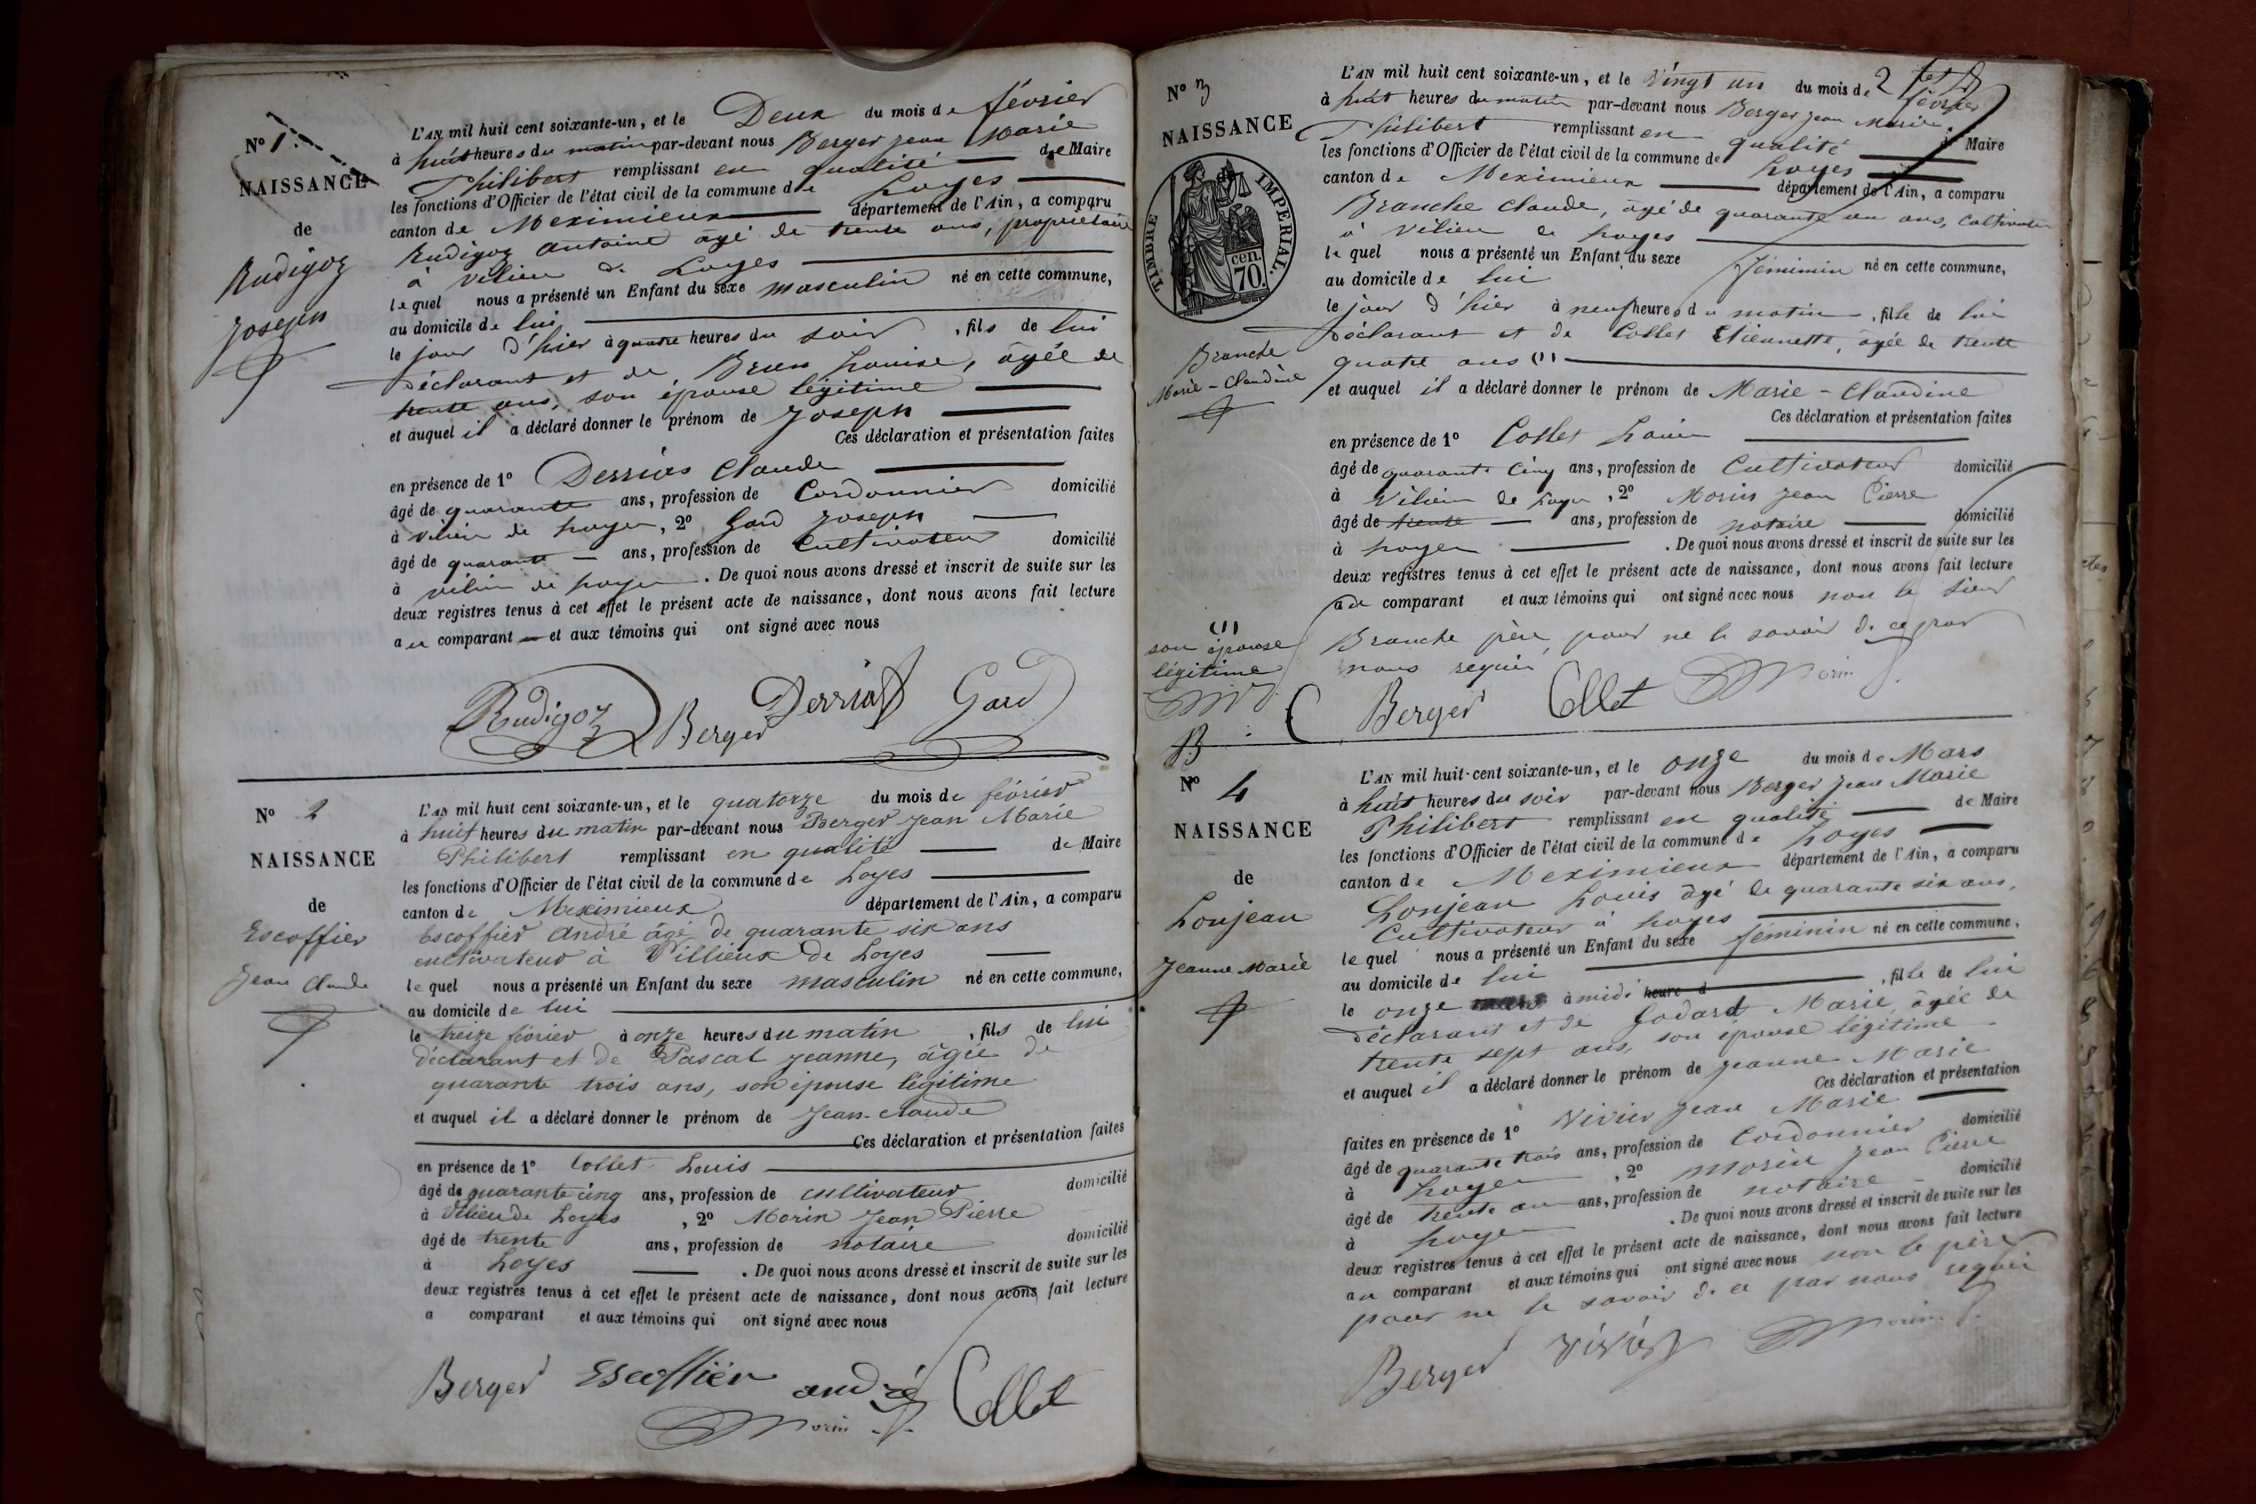 N° 1.
NAISSANCE
de
Rudigoz
Joseph
L'AN mil huit cent soixante-un, et le Deux du mois de février
à huit heures du matin par-devant nous Berger Jean Marie
Philibert remplissant en qualité de Maire
les fonctions d'Officier de l'état civil de la commune de Loyes
canton de Meximieux département de l'Ain, a comparu
Rudigoz Antoine âgé de trente ans, propriétaire
à Vilieu de Loyes
lequel nous a présenté un Enfant du sexe masculin né en cette commune,
au domicile de lui
le jour d'hier à quatre heures du soir, fils de lui
déclarant et de Brun Louise, âgée de
trente ans, son épouse légitime
et auquel il a déclaré donner le prénom de Joseph
Ces déclaration et présentation faites
en présence de 1° Derrias Claude
âgé de quarante ans, profession de Cordonnier domicilié
à Vilieu de Loyes, 2° Gard Joseph
âgé de quarante ans, profession de Cultivateur domicilié
à Vilieu de Loyes. De quoi nous avons dressé et inscrit de suite sur les
deux registres tenus à cet effet le présent acte de naissance, dont nous avons fait lecture
au comparant et aux témoins qui ont signé avec nous
Rudigoz Berger Derrias Gard
N° 2
NAISSANCE
de
Escoffier
Jean Claude
L'AN mil huit cent soixante-un, et le quatorze du mois de février
à huit heures du matin par-devant nous Berger Jean Marie
Philibert remplissant en qualité de Maire
les fonctions d'Officier de l'état civil de la commune de Loyes
canton de Meximieux département de l'Ain, a comparu
Escoffier André âgé de quarante six ans
cultivateur à Villieux de Loyes
lequel nous a présenté un Enfant du sexe masculin né en cette commune,
au domicile de lui
le treize février à onze heures du matin, fils de lui
déclarant et de Pascal Jeanne, âgée de
quarante trois ans, son épouse légitime
et auquel il a déclaré donner le prénom de Jean-Claude
Ces déclaration et présentation faites
en présence de 1° Collet Louis
âgé de quarante cinq ans, profession de cultivateur domicilié
à Vilieu de Loyes, 2° Morin Jean Pierre
âgé de trente ans, profession de notaire domicilié
à Loyes. De quoi nous avons dressé et inscrit de suite sur les
deux registres tenus à cet effet le présent acte de naissance, dont nous avons fait lecture
a comparant et aux témoins qui ont signé avec nous
Berger Escoffier andré Collet
Morin
N° 3
NAISSANCE
de
TIMBRE IMPERIAL.
cen.
70.
Branche
Marie-Claudine
2
L'AN mil huit cent soixante-un, et le Vingt un du mois de février
à huit heures du matin par-devant nous Berger Jean Marie
Philibert remplissant en qualité de Maire
les fonctions d'Officier de l'état civil de la commune de Loyes
canton de Meximieux département de l'Ain, a comparu
Branche Claude, âgé de quarante un ans, Cultivateur
à Vilieu de Loyes
lequel nous a présenté un Enfant du sexe féminin né en cette commune,
au domicile de lui
le jour d'hier à neuf heures du matin, fille de lui
déclarant et de Collet Etiennette, âgée de trente
quatre ans (1)
et auquel il a déclaré donner le prénom de Marie-Claudine
Ces déclaration et présentation faites
en présence de 1° Collet Louis
âgé de quarante cinq ans, profession de Cultivateur domicilié
à Vilieu de Loyes, 2° Morin Jean Pierre
âgé de trente ans, profession de notaire domicilié
à Loyes. De quoi nous avons dressé et inscrit de suite sur les
deux registres tenus à cet effet le présent acte de naissance, dont nous avons fait lecture
au comparant et aux témoins qui ont signé avec nous non le sieur
Branche père, pour ne le savoir de ce par
nous requis
(1)
son épouse
légitime
B
Berger Collet Morin
N° 4
NAISSANCE
de
Lonjean
Jeanne Marie
L'AN mil huit cent soixante-un, et le onze du mois de Mars
à huit heures du soir par-devant nous Berger Jean Marie
Philibert remplissant en qualité de Maire
les fonctions d'Officier de l'état civil de la commune de Loyes
canton de Meximieux département de l'Ain, a comparu
Lonjean Louis âgé de quarante six ans,
Cultivateur à Loyes
lequel nous a présenté un Enfant du sexe féminin né en cette commune,
au domicile de lui
le onze à midi heure d, fille de lui
déclarant et de Godard Marie âgée de
trente sept ans, son épouse légitime
et auquel il a déclaré donner le prénom de Jeanne Marie
Ces déclaration et présentation
faites en présence de 1° Vivier Jean Marie
âgé de quarante trois ans, profession de Cordonnier domicilié
à Loyes, 2° Morin Jean Pierre
âgé de trente un ans, profession de notaire domicilié
à Loyes. De quoi nous avons dressé et inscrit de suite sur les
deux registres tenus à cet effet le présent acte de naissance, dont nous avons fait lecture
au comparant et aux témoins qui ont signé avec nous non le père
pour ne le savoir de ce par nous requis
Berger Vivier Morin